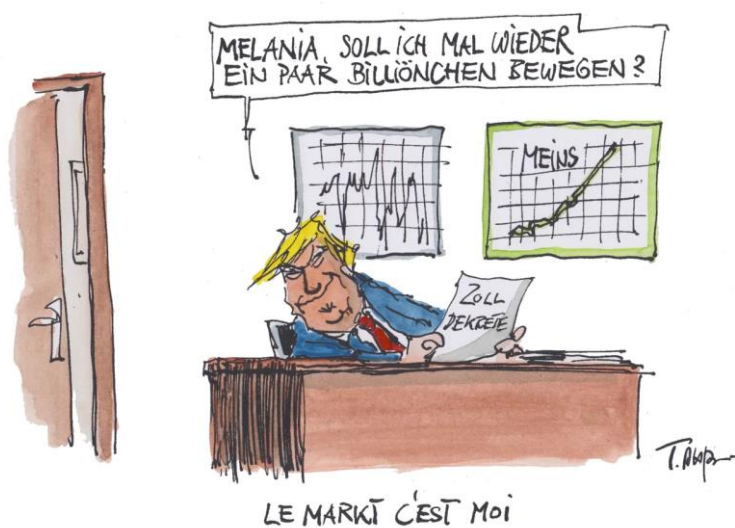 MELANIA, SOLL ICH MAL WIEDER
EIN PAAR BILLIÖNCHEN BEWEGEN?
MEINS
ZOLL
DEKRETE
LE MARKT C'EST MOI